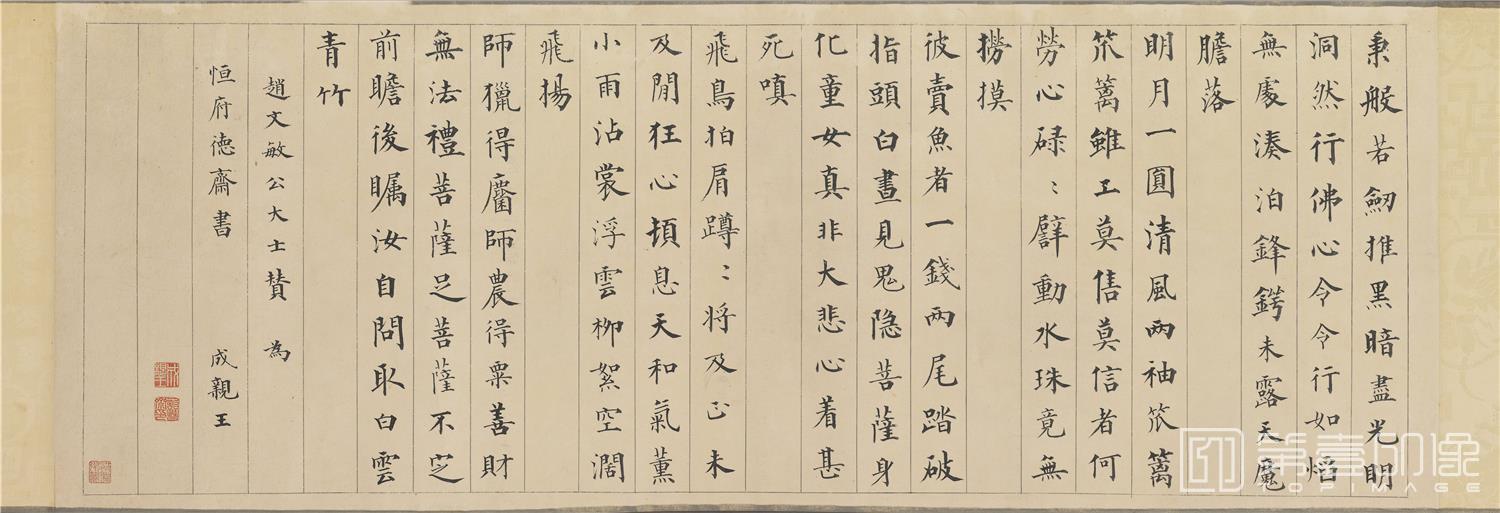 秉般若劒推黑暗盡光明
洞然行佛心令令行如焰
無處湊泊鋒鍔未露天魔
膽落
明月一圓清風兩袖笊籬
笊籬雖工莫售莫信者何
勞心碌〻擘動水珠竟無
撈摸
彼賣魚者一錢兩尾踏破
指頭白晝見鬼隐菩薩身
化童女真非大悲心着甚
死嗔
飛鳥拍肩蹲〻将及正未
及閒狂心頓息天和氣薰
小雨沾裳浮雲柳絮空濶
飛揚
師獵得麕師農得粟善財
無法禮菩薩足菩薩不
前瞻後矚汝自問取白雲
青竹
趙文敏公大士賛 為
恒府德齋書 成親王